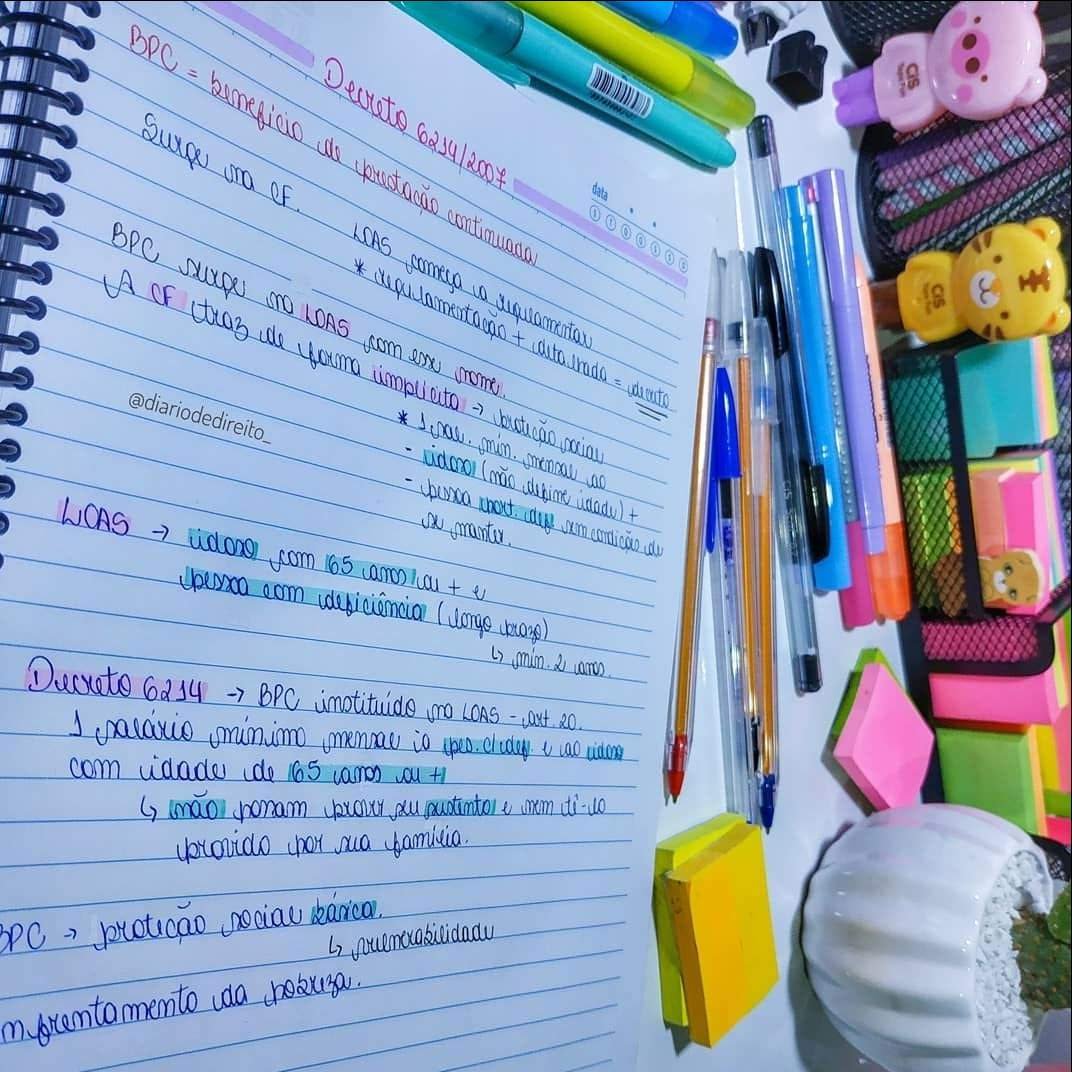 Decreto 6214/2007
data
BPC = benefício de prestação continuada
Surge na CF.
LOAS começa a regulamentar
* regulamentação + detalhada = decreto
BPC surge na LOAS com esse nome.
A CF traz de forma implícita → proteção social
* 1 sal. mín. mensal ao
- idoso (não define idade) +
- pessoa port. def. sem condições de
se manter.
@diariodedireito_
LOAS → idoso com 65 anos ou + e
pessoa com deficiência (longo prazo)
↳ mín. 2 anos.
Decreto 6214 → BPC instituído na LOAS - art. 20.
1 salário mínimo mensal à pes. c/ def. e ao idoso
com idade de 65 anos ou +
↳ não possam prover seu sustento e nem tê-lo
provido por sua família.
BPC → proteção social básica.
↳ vulnerabilidade
enfrentamento da pobreza.
CiS
CiS